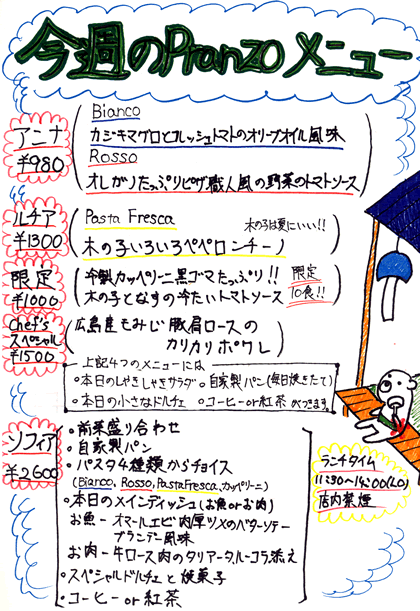 今週のPranzoメニュー
アンナ
¥980
Bianco
カジキマグロとフレッシュトマトのオリーブオイル風味
Rosso
オレガノたっぷりピザ職人風の野菜のトマトソース
ルチア
¥1300
Pasta Fresca
木の子は夏にいい!!
木の子いろいろペペロンチーノ
限定
¥1000
冷製カッペリーニ黒ゴマたっぷり!!
木の子となすの冷たいトマトソース
限定
10食!!
Chef's
スペシャル
¥1500
広島産もみじ豚肩ロースの
カリカリポワレ
上記4つのメニューには
・本日のしゃきしゃきサラダ・自家製パン(毎日焼きたて)
・本日の小さなドルチェ ・コーヒーor紅茶 がつきます
ソフィア
¥2600
・前菜盛り合わせ
・自家製パン
・パスタ4種類からチョイス
(Bianco, Rosso, PastaFresca, カッペリーニ)
・本日のメインディッシュ(お魚orお肉)
お魚-オマールエビ肉厚ツメのバターソテー
ブランデー風味
お肉-牛ロース肉のタリアータ,ルーコラ添え
・スペシャルドルチェと焼菓子
・コーヒー or 紅茶
ランチタイム
11:30～14:00(L.O)
店内禁煙